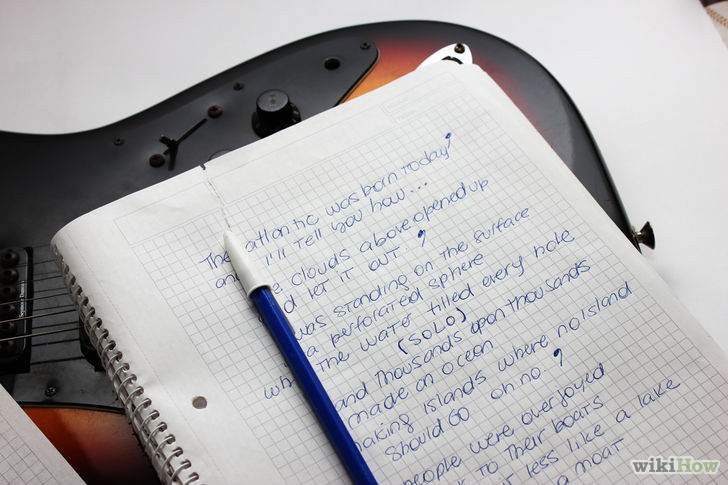 The atlantic was born today,
and I'll tell you how...
clouds above opened up
let it out,
was standing on the surface
a perforated sphere
The water filled every hole
(SOLO)
and Thousands upon thousands
made an ocean
making islands where no island
should GO oh no,
people were overjoyed
to Their boats
it less like a lake
a moat
wikiHow